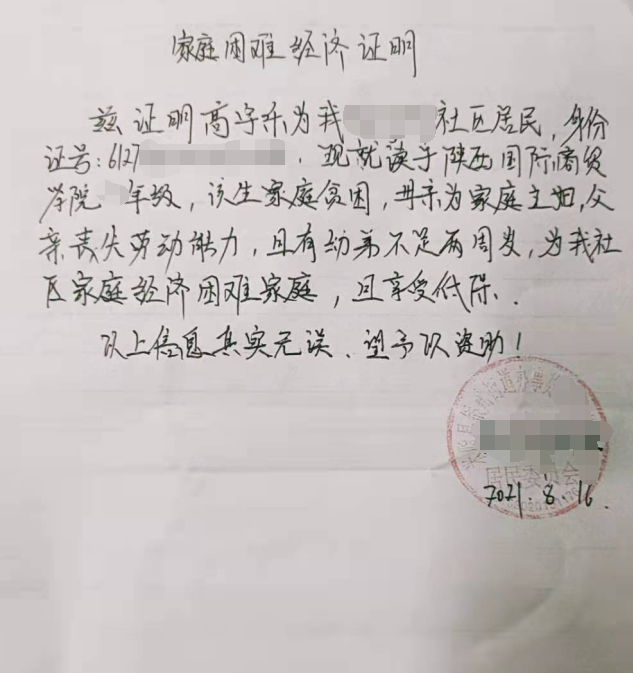 家庭困难经济证明
兹证明高宇乐为我 社区居民,身份
证号:6127 ,现就读于陕西国际商贸
学院 年级,该生家庭贫困,母亲为家庭主妇,父
亲丧失劳动能力,且有幼弟不足两周岁,为我社
区家庭经济困难家庭,且享受低保.
以上信息真实无误、望予以资助!
居民委员会
2021.8.16.